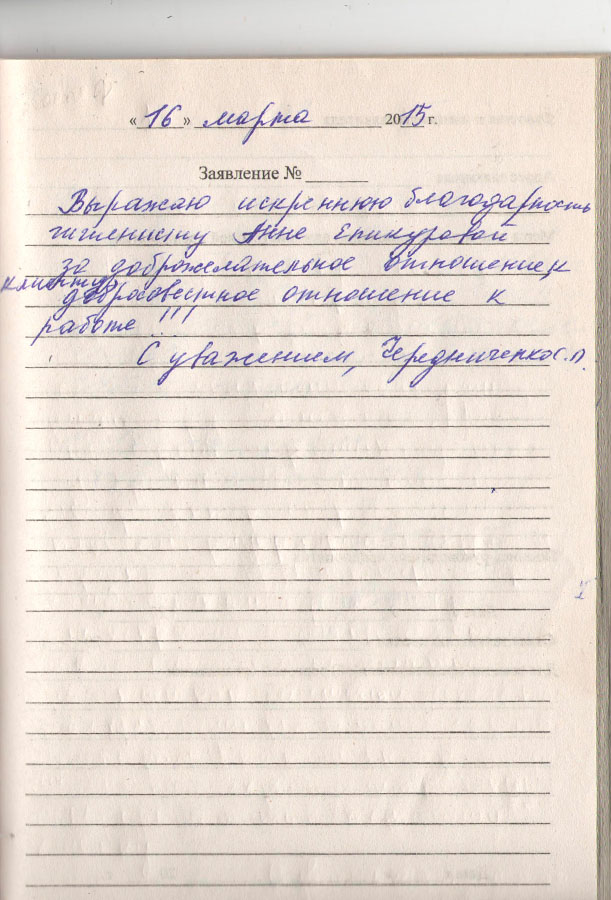 «16» марта 2015 г.
Заявление №
Выражаю искреннюю благодарность
гигиенисту Анне Епикуровой
за доброжелательное отношение к
клиенту,
добросовестное отношение к
работе!!!
С уважением, Чередниченко С.П.